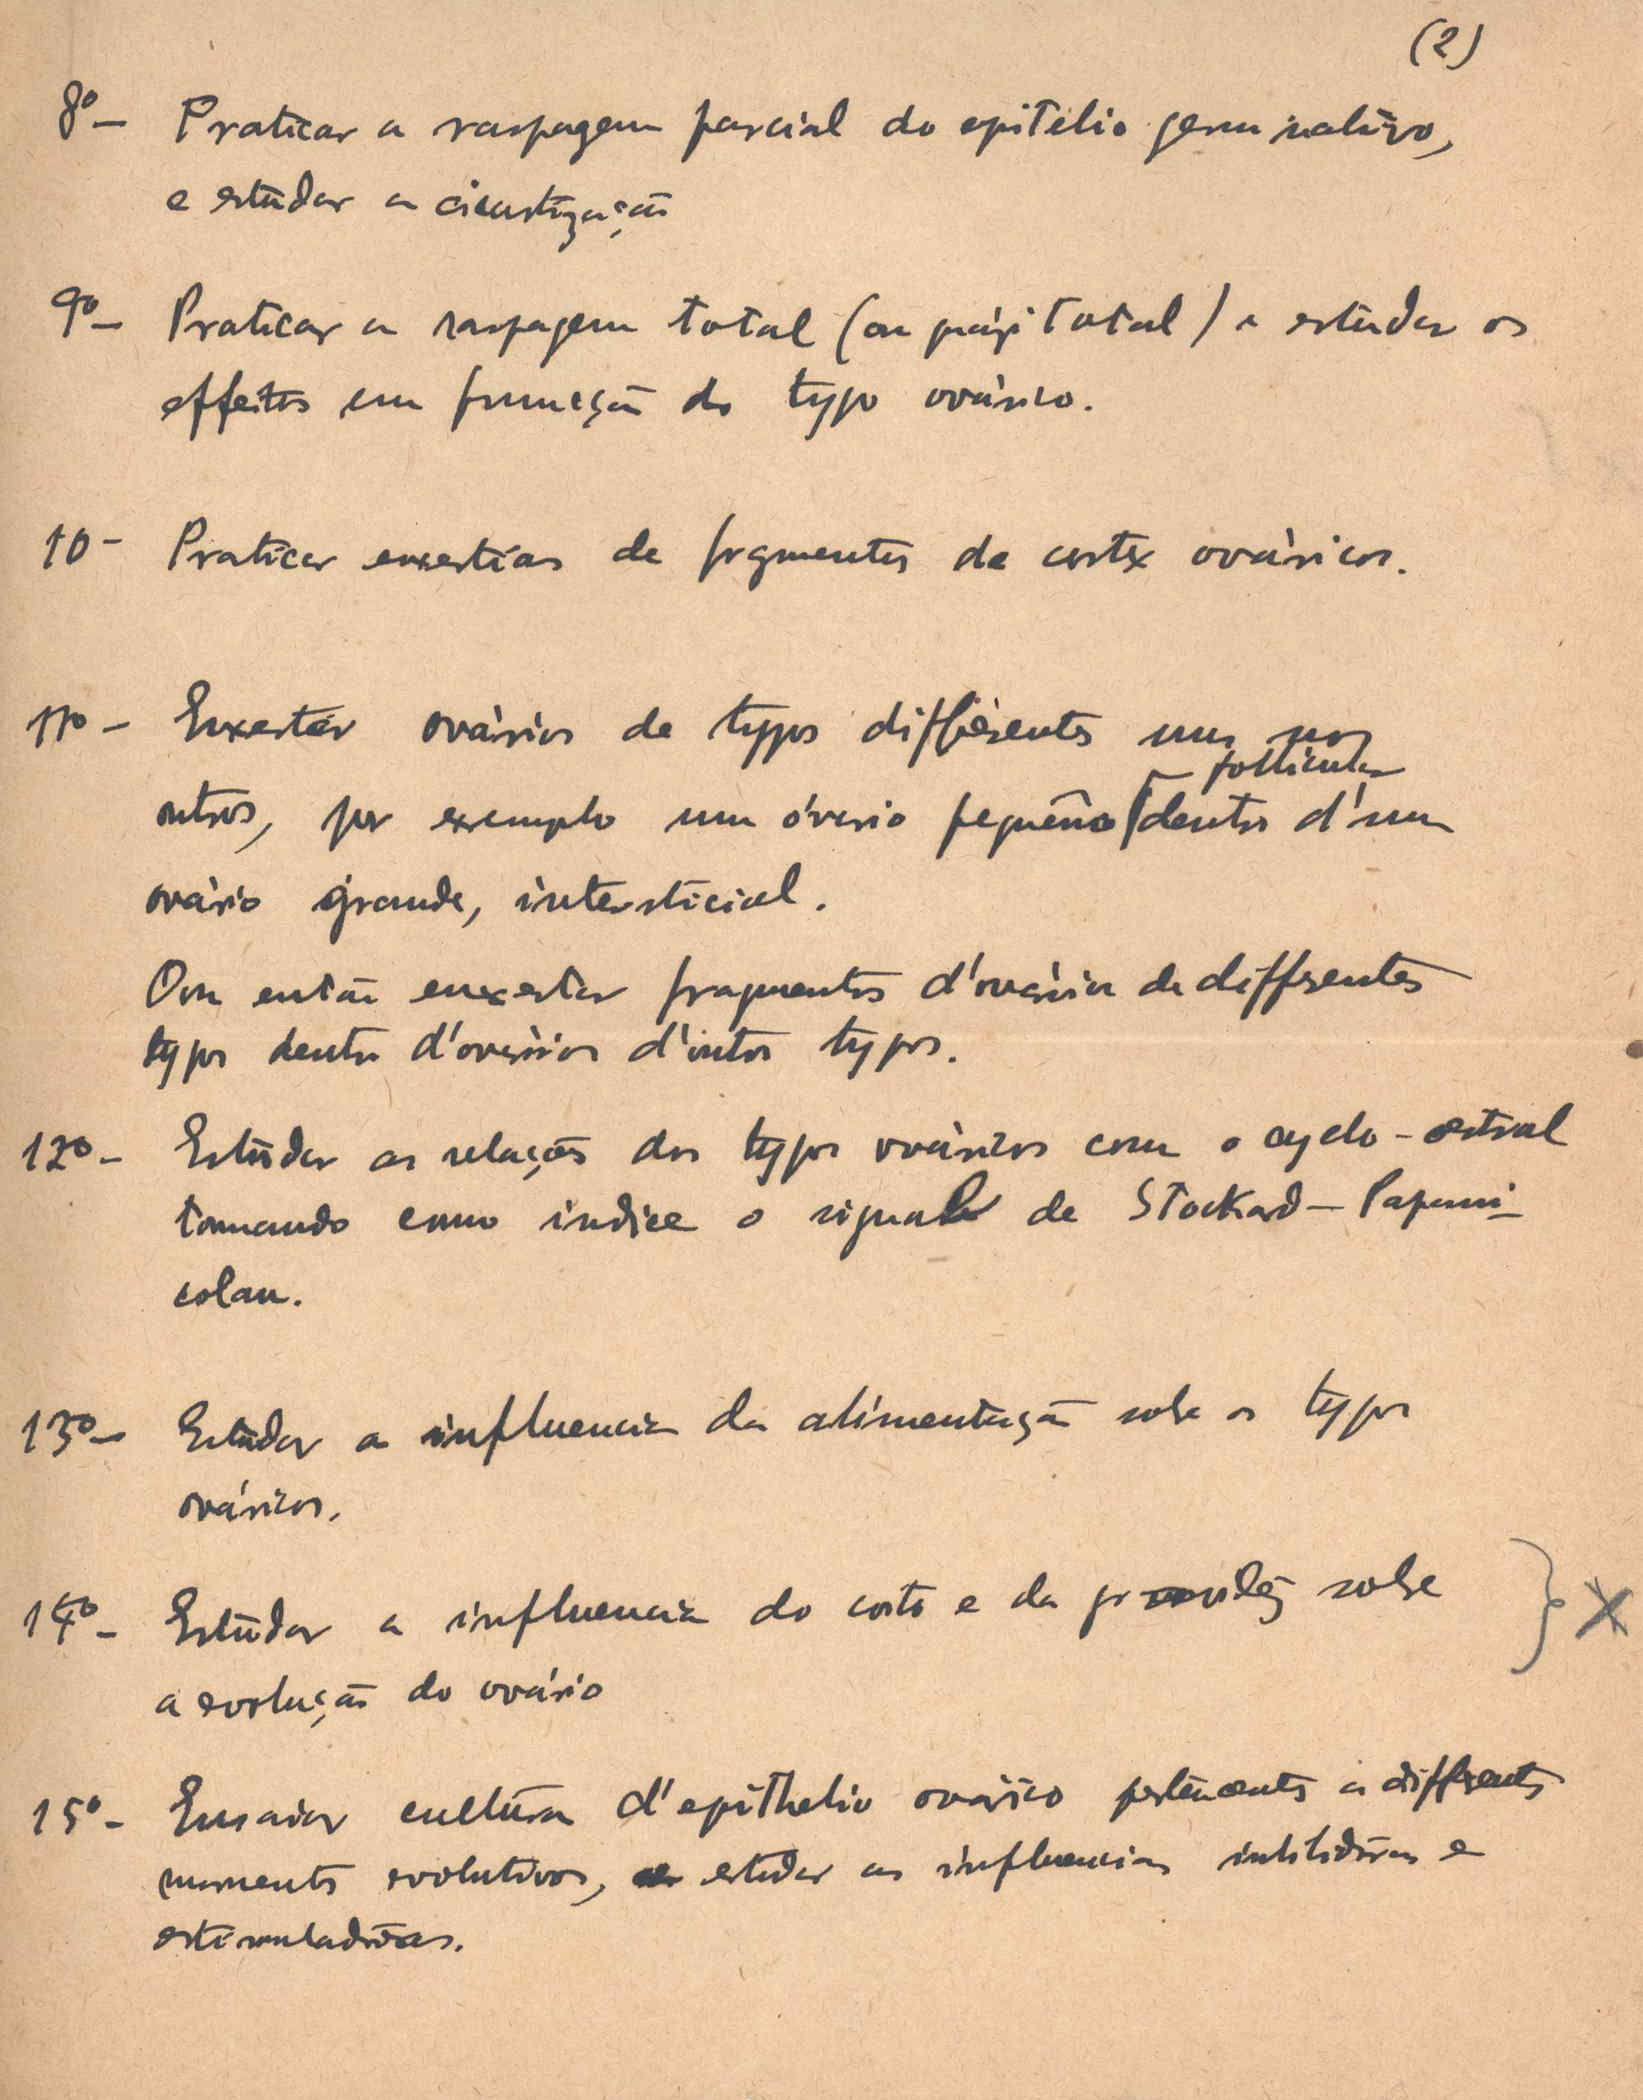 (2)
8º - Praticar a raspagem parcial do epitélio germinativo,
e estudar a cicatrização
9º - Praticar a raspagem total (ou quási total) e estudar os
effeitos em funcção do typo ovárico.
10 - Praticar enxertias de frgmentos de cortex ováricos.
11º - Enxertar ovários de typos differentes uns nos
follicular
outros, por exemplo um óvario pequeno dentro d'um
ovário grande, intersticial.
Ou então enxertar fragmentos d'ovários de differentes
typos dentro d'ovários d'outros typos.
12º - Estudar as relações dos typos ováricos com o cyclo-oestral
tomando como indice o signal de Stockard - Papani-
colau.
13º - Estudar a influencia da alimentação sobre os typos
ováricos.
14º - Estudar a influencia do coito e da gravidez sobre
a evolução do ovário
15º - Ensaiar cultura d'epithelio ovárico pertencente a differentes
momentos evolutivos, estudar as influencias inibidoras e
estimuladoras.